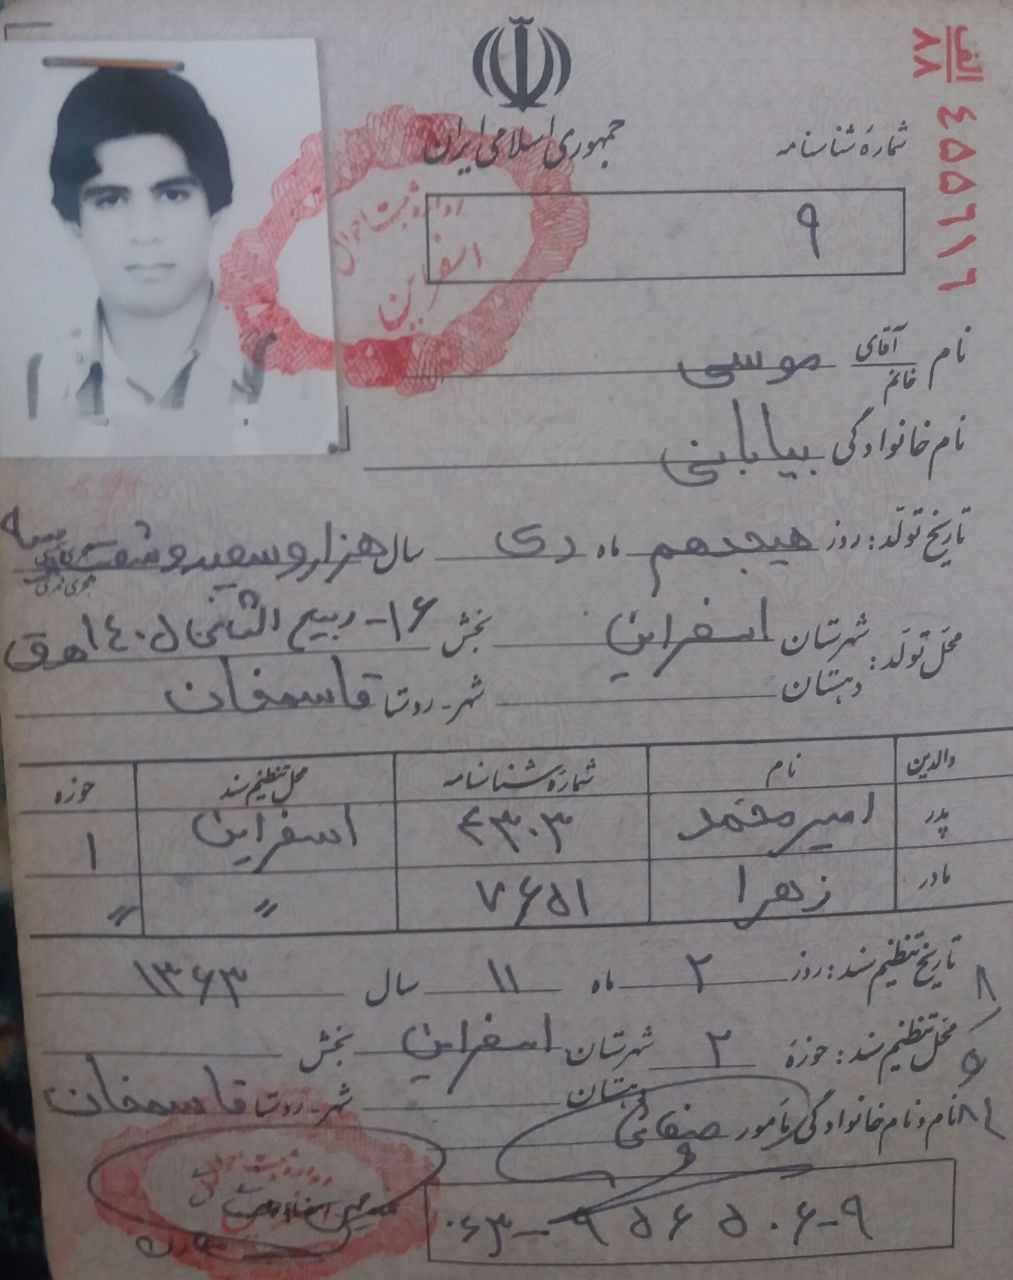 الف
۸۸
٤٥٥٦١٦
جمهوری اسلامی ایران
شمارهٔ شناسنامه
۹
اداره ثبت احوال
اسفراین
نام آقای خانم موسی
نام خانوادگی بیابانی
تاریخ تولد: روز هیجدهم ماه دی سال هزار و سیصد و شصت و سه
هجری شمسی
محل تولد: شهرستان اسفراین بخش ۱۶- ربیع الثانی ۱٤۰۵ هـ ق
دهستان شهر- روستا قاسمخان
والدین نام شمارهٔ شناسنامه محل تنظیم سند حوزه
پدر امیرمحمد ۴۳۰۳ اسفراین ۱
مادر زهرا ۷۶۵۱ 〃 〃
تاریخ تنظیم سند: روز ۲ ماه ۱۱ سال ۱۳۶۳
محل تنظیم سند: حوزهٔ ۲ شهرستان اسفراین بخش
دهستان شهر- روستا قاسمخان
نام و نام خانوادگی مامور
۰۶۳-۹۵۶۵۰۶-۹